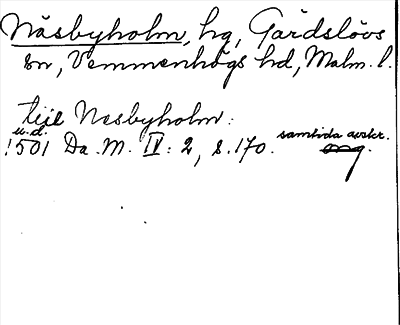 Näsbyholm, hg, Gärdslövs
sn, Vemmenhögs hd, Malm. l.
tije Nesbyholm:
u.d.
1501 Da. M. IV: 2, s. 170. samtida avskr.
orig.